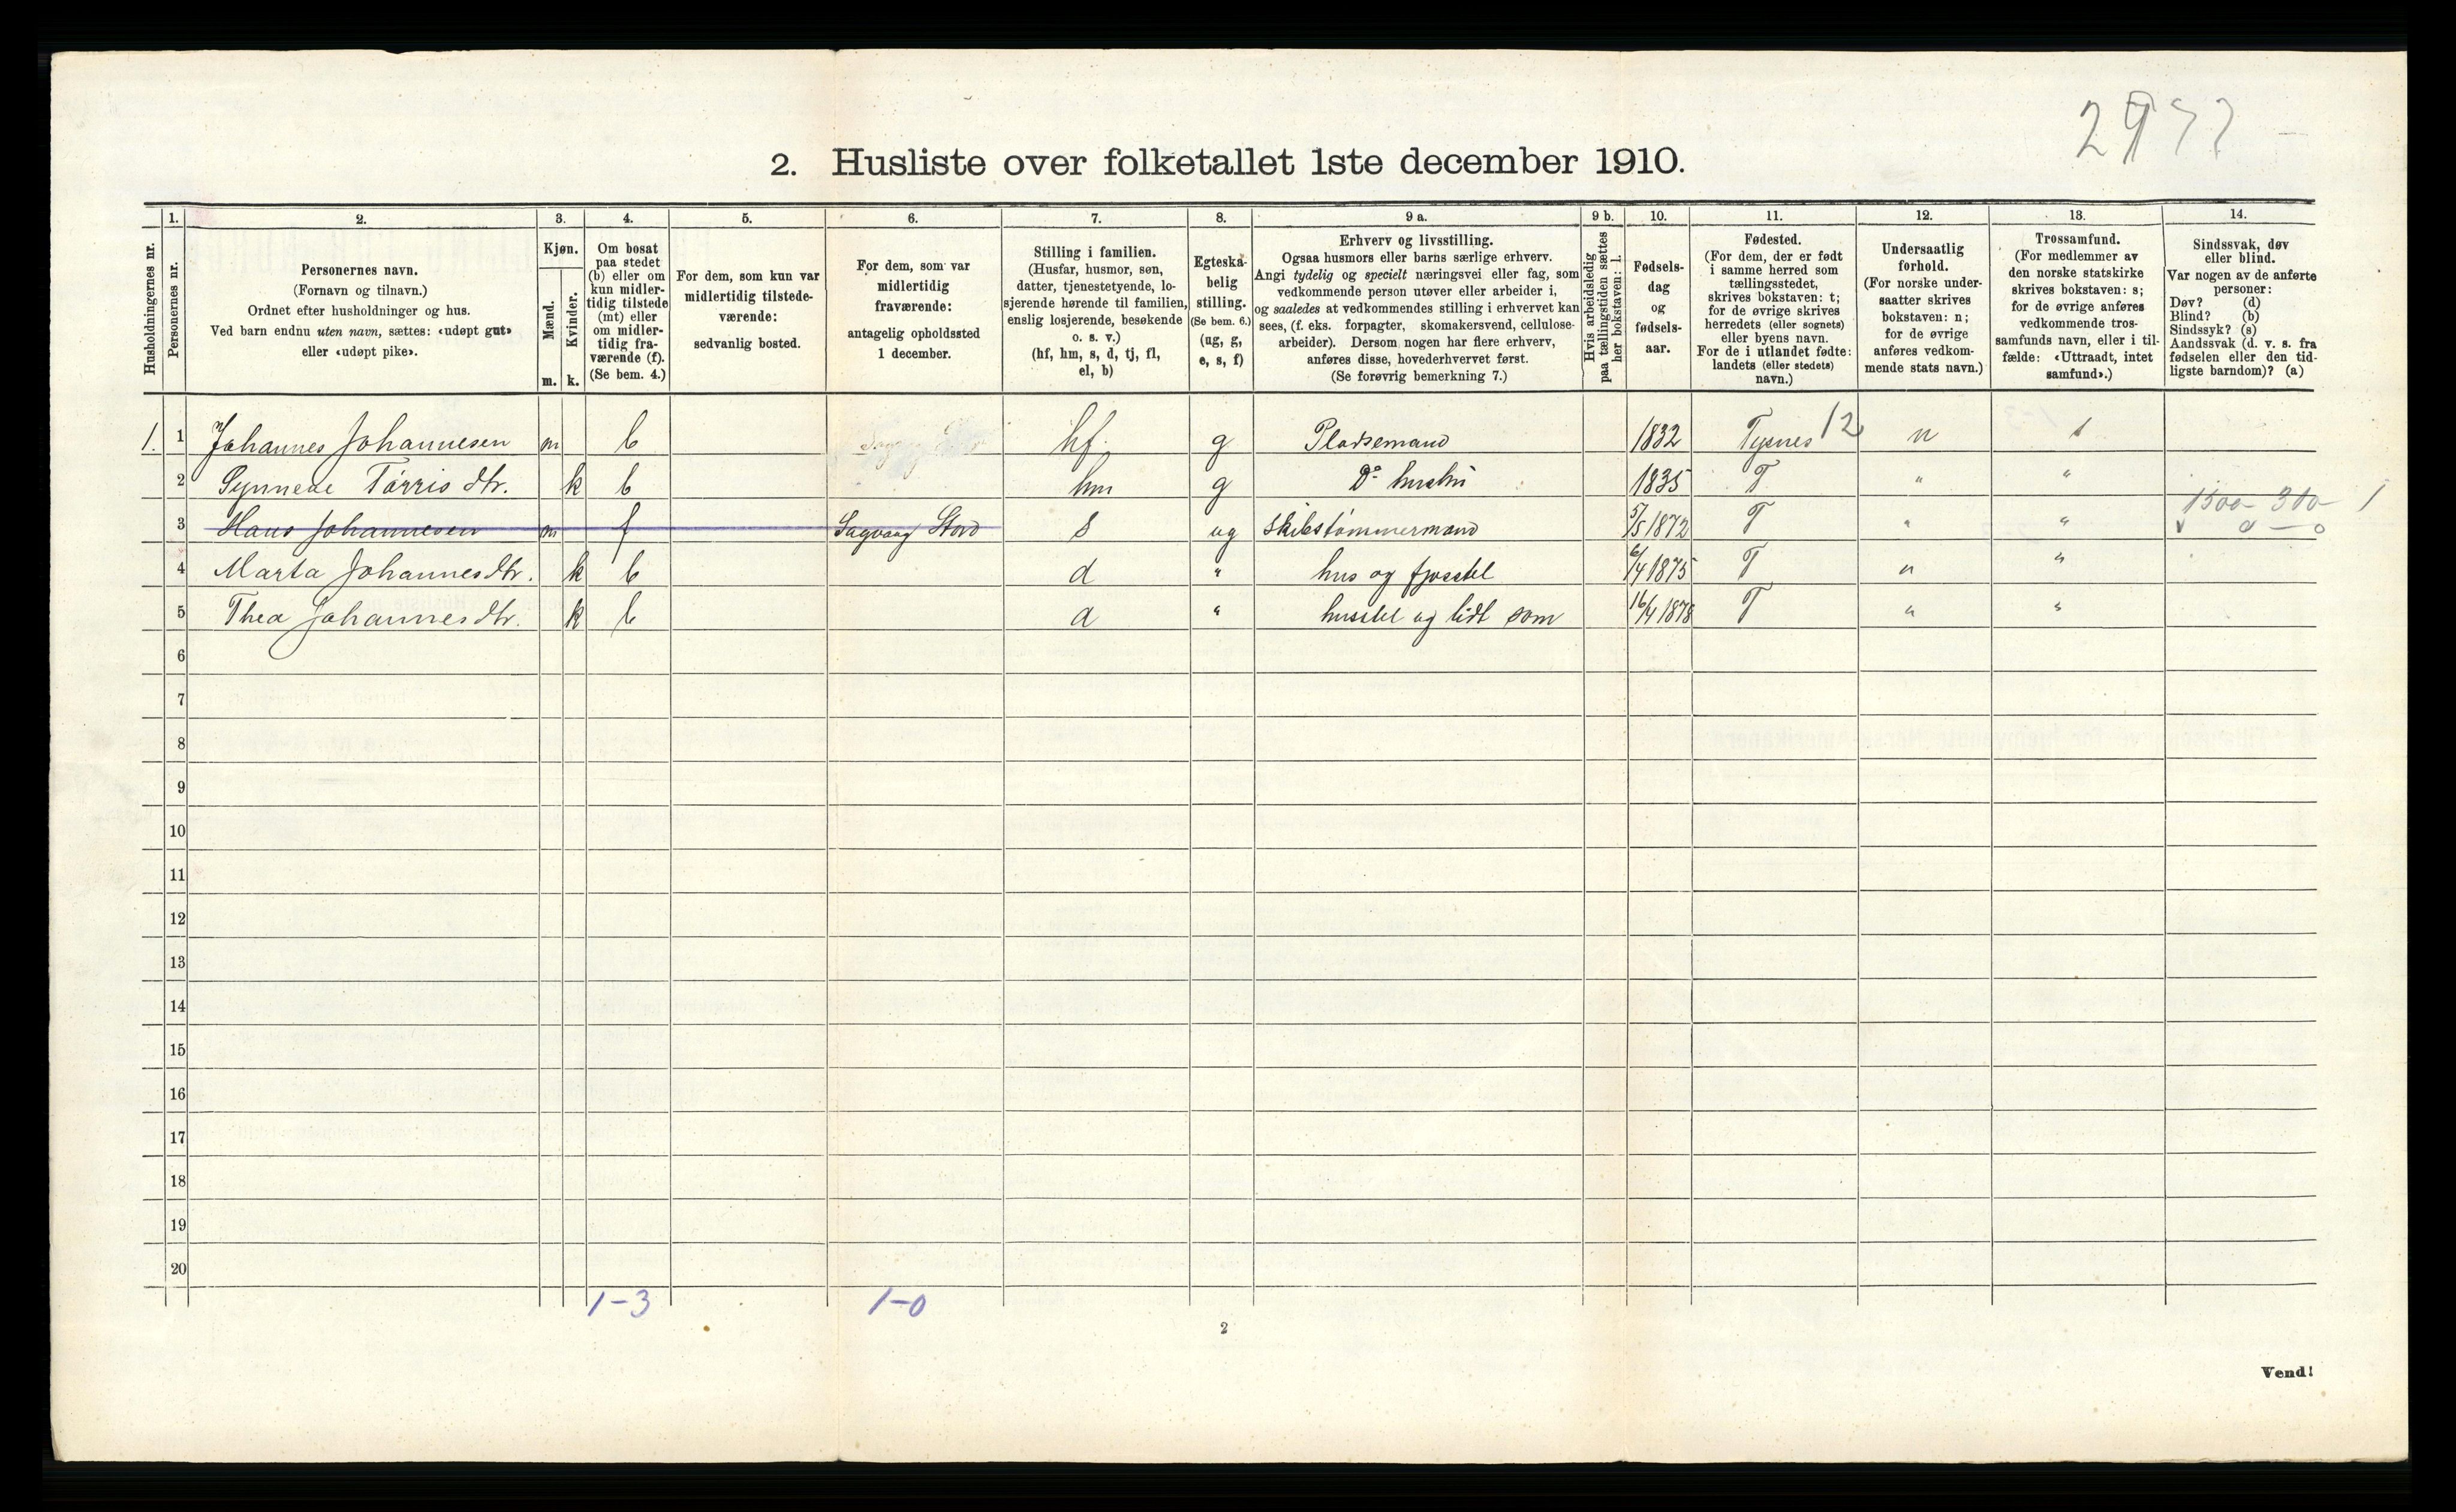 2. Husliste over folketallet 1ste december 1910.
Husholdningernes nr.
1. Personernes nr.
2. Personernes navn.
(Fornavn og tilnavn.)
Ordnet efter husholdninger og hus.
Ved barn endnu uten navn, sættes: «udøpt gut»
eller «udøpt pike».
3. Kjøn.
Mænd. m.
Kvinder. k.
4. Om bosat
paa stedet
(b) eller om
kun midler-
tidig tilstede
(mt) eller
om midler-
tidig fra-
værende (f).
(Se bem. 4.)
5. For dem, som kun var
midlertidig tilstede-
værende:
sedvanlig bosted.
6. For dem, som var
midlertidig
fraværende:
antagelig opholdssted
1 december.
7. Stilling i familien.
(Husfar, husmor, søn,
datter, tjenestetyende, lo-
sjerende hørende til familien,
enslig losjerende, besøkende
o. s. v.)
(hf, hm, s, d, tj, fl,
el, b)
8. Egteska-
belig
stilling.
(Se bem. 6.)
(ug, g,
e, s, f)
9 a. Erhverv og livsstilling.
Ogsaa husmors eller barns særlige erhverv.
Angi tydelig og specielt næringsvei eller fag, som
vedkommende person utøver eller arbeider i,
og saaledes at vedkommendes stilling i erhvervet kan
sees, (f. eks. forpagter, skomakersvend, cellulose-
arbeider). Dersom nogen har flere erhverv,
anføres disse, hovederhvervet først.
(Se forøvrig bemerkning 7.)
9 b. Hvis arbeidsledig
paa tællingstiden sættes
her bokstaven: l.
10. Fødsels-
dag
og
fødsels-
aar.
11. Fødested.
(For dem, der er født
i samme herred som
tællingsstedet,
skrives bokstaven: t;
for de øvrige skrives
herredets (eller sognets)
eller byens navn.
For de i utlandet fødte:
landets (eller stedets)
navn.)
12. Undersaatlig
forhold.
(For norske under-
saatter skrives
bokstaven: n;
for de øvrige
anføres vedkom-
mende stats navn.)
13. Trossamfund.
(For medlemmer av
den norske statskirke
skrives bokstaven: s;
for de øvrige anføres
vedkommende tros-
samfunds navn, eller i til-
fælde: «Uttraadt, intet
samfund».)
14. Sindssvak, døv
eller blind.
Var nogen av de anførte
personer:
Døv? (d)
Blind? (b)
Sindssyk? (s)
Aandssvak (d. v. s. fra
fødselen eller den tid-
ligste barndom)? (a)
1. 1 Johannes Johannesen m b hf. g Pladsemand 1832 Tysnes 12 n s
2 Synneve Tørris dtr. k b hm g Do hustru 1835 T " "
3 Hans Johannesen m f Sagvaag Stord s ug Skibstømmermand 5/5 1872 T " " 1500- 300- 1
4 Marta Johannesdtr. k b d " hus og fjosstel 6/4 1875 T " "
5 Thea Johannesdtr. k b d " husstel og lidt som 16/4 1878 T " "
6
7
8
9
10
11
12
13
14
15
16
17
18
19
20
1-3 1-0
2
Vend!